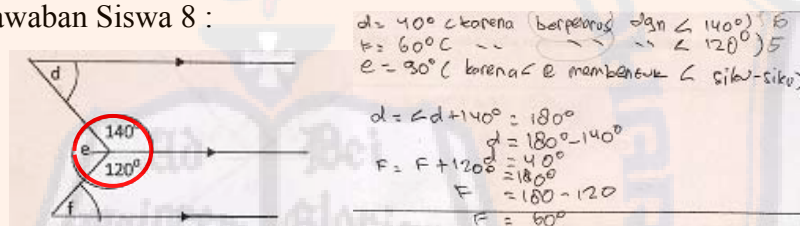 awaban Siswa 8 :
d
140°
e
120°
f
d = 40° (karena (berpelurus) dgn < 140°) 5
F = 60° ( -- -- -- < 120°) 5
e = 90° ( karena < e membentuk < siku-siku)
d = <d + 140° = 180°
d = 180° - 140°
d = 40°
F = F + 120° = 180°
F = 180 - 120
F = 60°